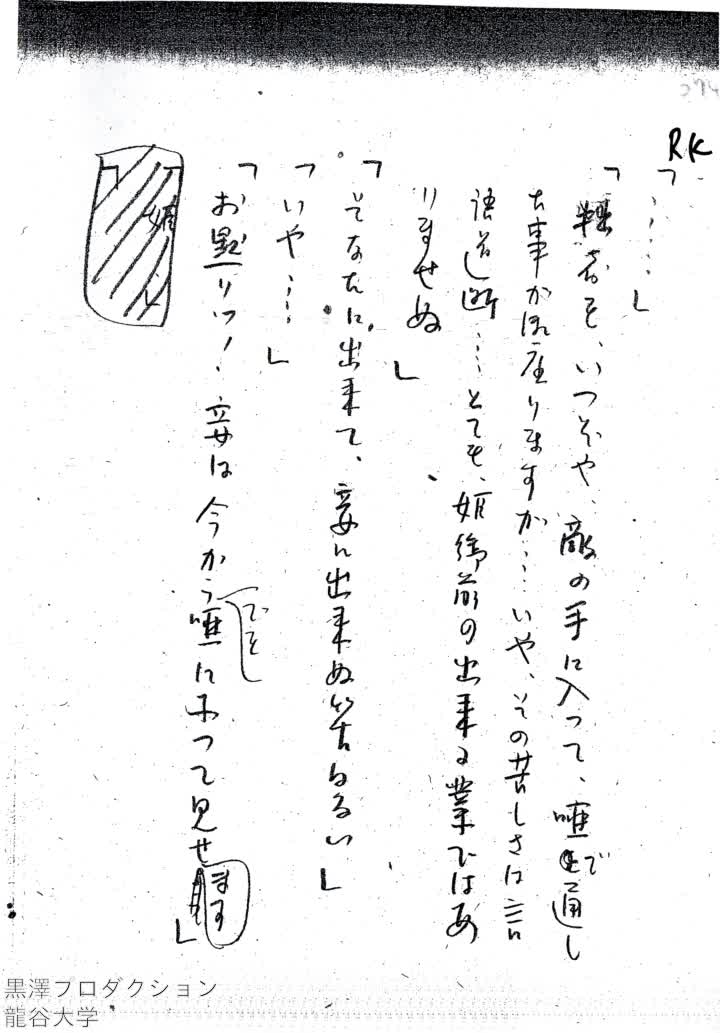 RK
「……」
「拙者も、いつぞや、敵の手に入って、唖で通し
た事が御座りますが……いや、その苦しさは言
語道断……とても、姫御前の出来る業ではあ
りませぬ」
「そなたに出来て、妾に出来ぬ筈はない」
「いや……」
「お黙りッ! 妾は今から唖になって見せます」
でも
「姫」
黒澤プロダクション
龍谷大学